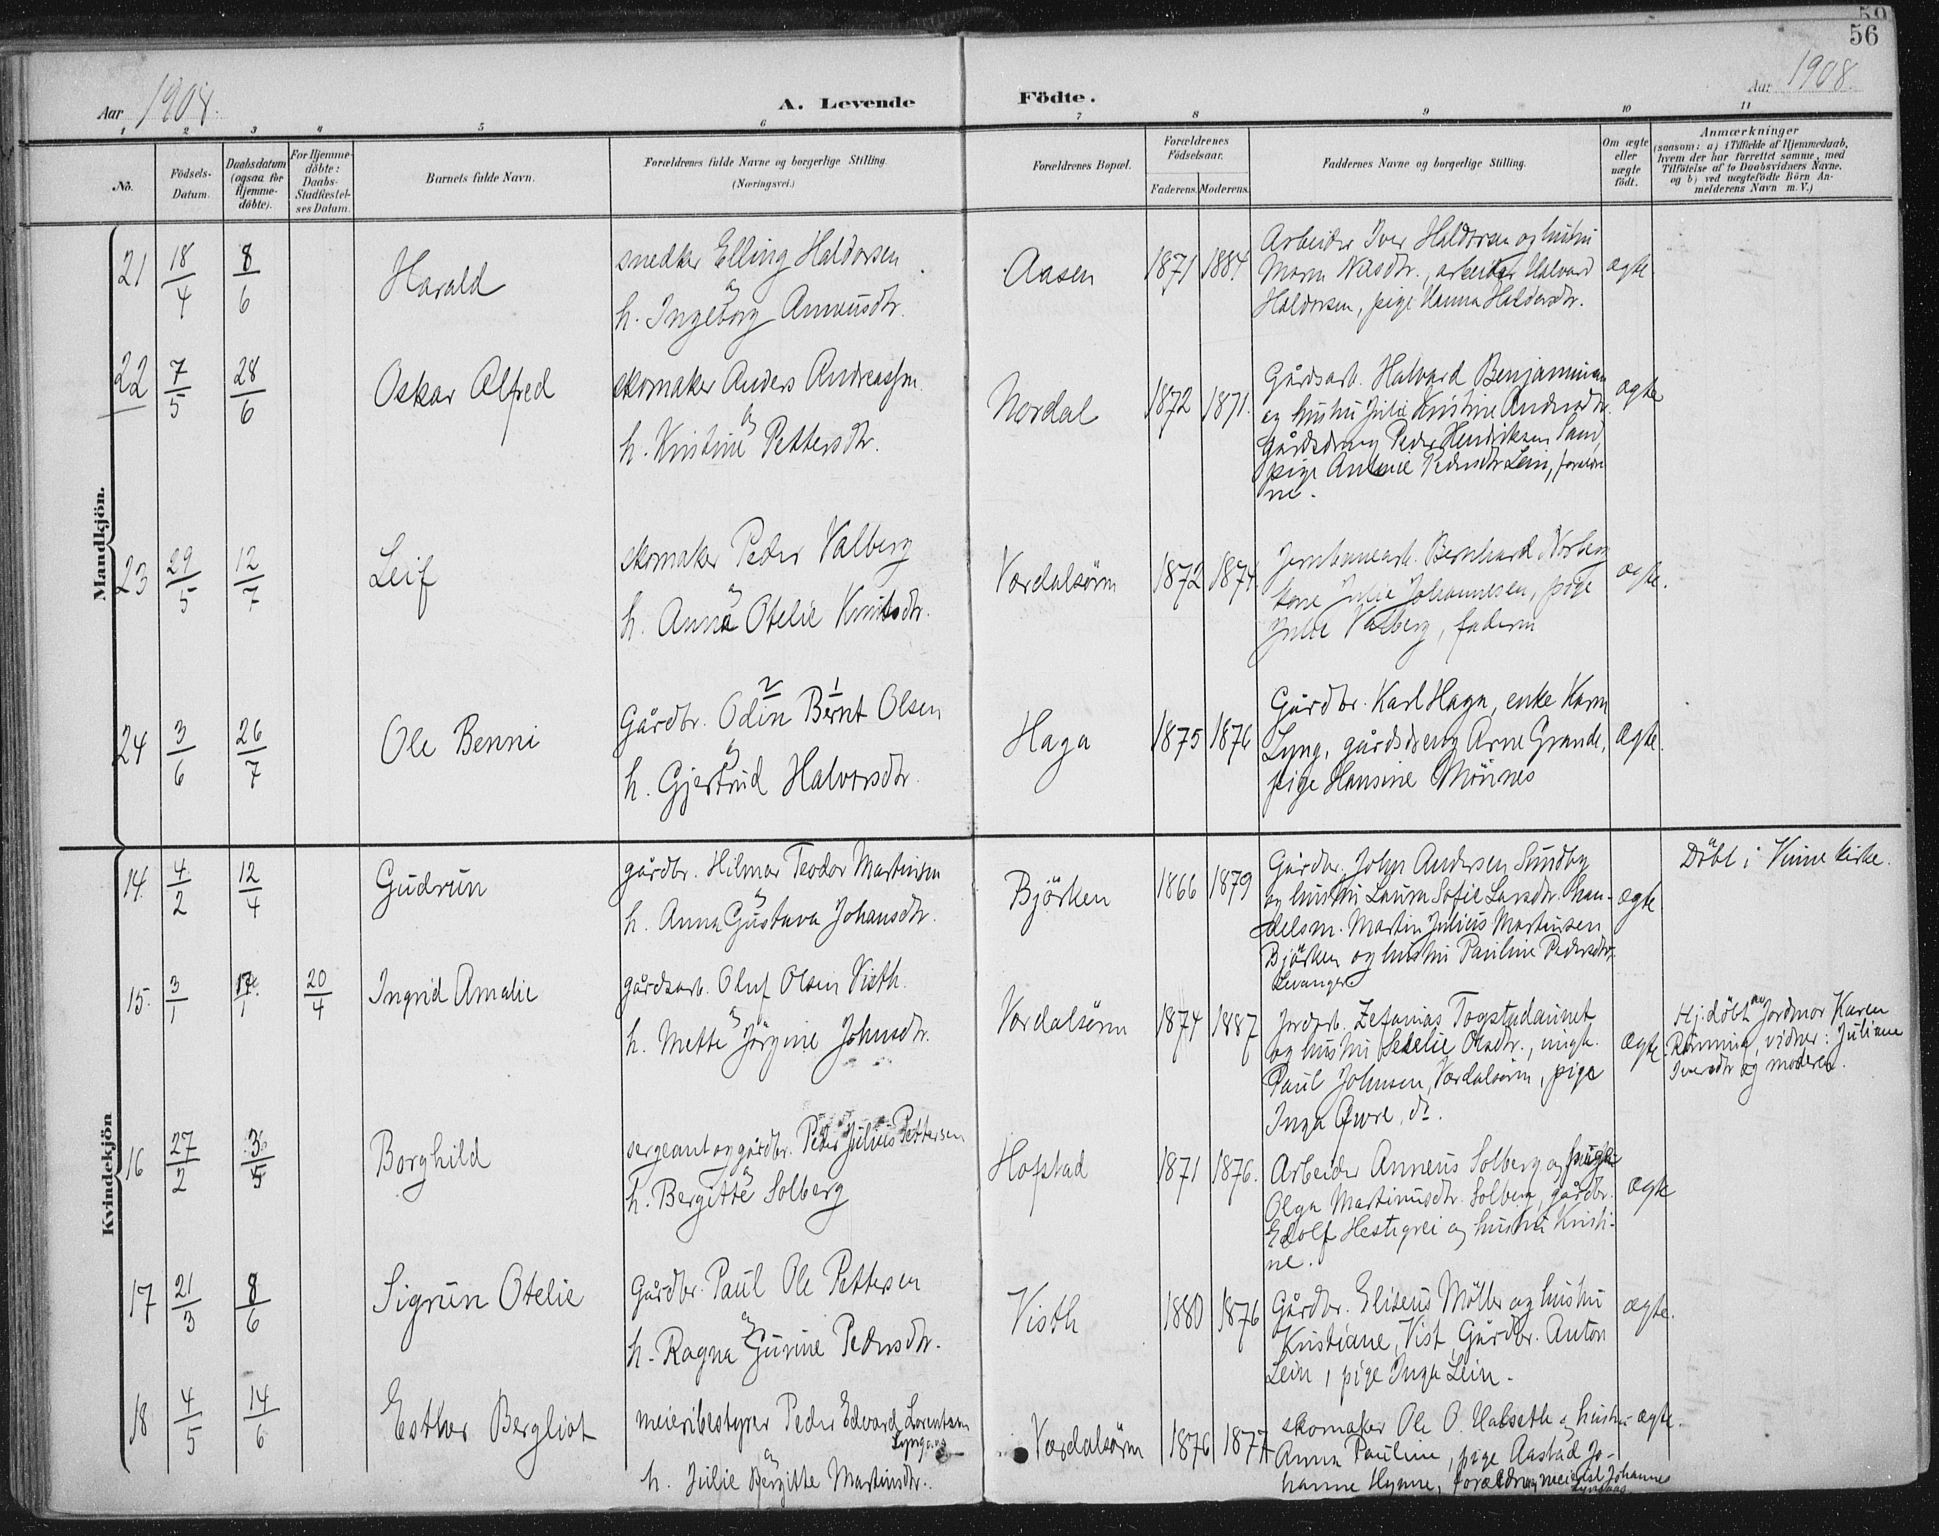 59
56
Aar 1908.
A. Levende Födte.
Aar 1908.
1 2 3 4 5 6 7 8 9 10 11
No.
Födsels-Datum.
Daabsdatum (ogsaa for Hjemme-döbte).
For Hjemme-döbte: Daabs-Stadfæstel-ses Datum.
Barnets fulde Navn.
Forældrenes fulde Navne og borgerlige Stilling.
(Næringsvei.)
Forældrenes Bopæl.
Forældrenes Födselsaar.
Faderens. Moderens.
Faddernes Navne og borgerlige Stilling.
Om ægte eller uægte födt.
Anmærkninger
(saasom: a) i Tilfælde af Hjemmedaab,
hvem der har forrettet samme, med
Tilföielse af to Daabsvidners Navne,
og b) ved uægtefödte Börn An-
melderens Navn m. V.)
Mandkjön.
21 18/4 8/6 Harald
snedker Elling Haldorsen
og
h. Ingeborg Anneusdtr.
Aasen 1871 1884
Arbeider Iver Haldorsen og hustru
Maren Nilsdtr., arbeider Halvard
Haldorsen, pige Hanna Haldorsdtr.
ægte
22 7/5 28/6 Oskar Alfred
skomaker Anders Andreassen
og
h. Kristine Pettersdtr.
Nordal 1872 1871.
Gårdsarb. Halvard Benjaminsen
og hustru Julie Kristine Andersdtr.
Gårdsdreng Peder Henriksen Sand,
pige Antonie Pedersdtr Lein, foræld
ne.
ægte
23 29/5 12/7 Leif
skomaker Peder Valberg
og
h. Anna Otelie Knutsdtr.
Værdalsören 1872 1874
Jernbanearb. Bernhard Norberg
kone Julie Johannesen, pige
Valberg, faderen
ægte.
24 3/6 26/7 Ole Benni
2 1
Gårdbr. Odin Bernt Olsen
og
h. Gjertrud Halvorsdtr.
Haga 1875 1876
Gårdbr. Karl Haga, enke Karen
Lyng, gårdsdreng Arne Grande,
pige Hansine Mönnes
Ægte.
Kvindekjön
14. 4/2 12/4 Gudrun
gårdbr. Hilmar Teodor Martinsen
og
h. Anna Gustava Johansdtr.
Björken 1866 1879
Gårdbr. John Andersen Sundby
og hustru Laura Sofie Larsdtr. han-
delsm. Martin Julius Martinsen
Björken og hustru Pauline Pedersdtr.
Levanger
ægte
Döbt i Vinne kirke.
15. 3/1 17/1 20/4 Ingrid Amalie
gårdsarb. Oluf Olsen Visth.
og
h. Mette Jörgine Johnsdtr.
Værdalsören 1874 1887
Jordarb. Zefanias Togstadaunet
og hustru Seselie Olsdtr., ungk.
Paul Johnsen, Værdalsören, pige
Inga Övre, do.
Ægte
Hj.döbt av Jordmor Karen
Rönning, vidner: Juliane
Iversdtr og moderen.
16 27/2 3/5 Borghild
sergeant og gårdbr. Peder Julius Pettersen
og
h. Bergitte Solberg
Hofstad 1871 1876.
Arbeider Anneus Solberg og hustru
Olga Martinusdtr. Solberg, gårdbr.
Edolf Hestegrei og hustru Kristi-
ne.
ægte
17 21/3 8/6 Sigrun Otelie
Gårdbr. Paul Ole Pettersen
og
h. Ragna Gurine Pedersdtr.
Visth 1880 1876
Gårdbr. Eliseus Möller og hustru
Kristiane, Vist, Gårdbr. Anton
Lein, pige Inga Lein.
ægte.
18 4/5 14/6 Esther Bergliot
meieribestyrer Peder Edvard Lorentsen
Lyngaas
og
h. Julie Bergitte Martinsdtr.
Værdalsören 1876 1877
skomaker Ole O. Halseth og hustru
Anna Pauline, pige Aastad Jo-
hanne Hynne, forældrene, meierist Johannes
Lyngaas
ægte.